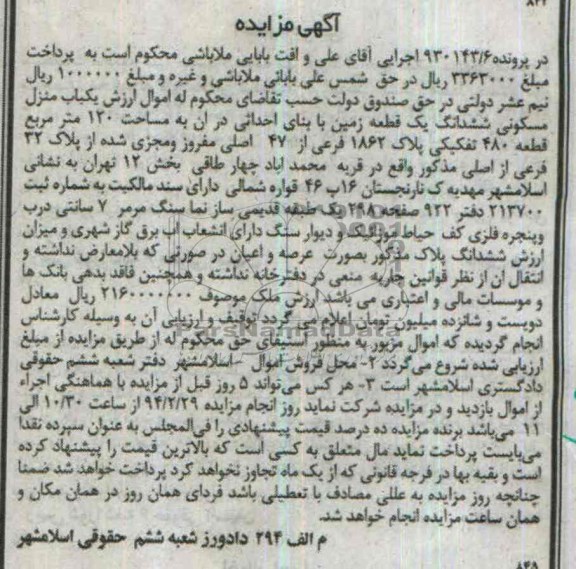 ۸۲۲
آگهی مزایده
در پرونده ۹۳۰۱۴۳/۶ اجرایی آقای علی و افت بابایی ملاباشی محکوم است به پرداخت
مبلغ ۳۳۶۳۰۰۰ ریال در حق شمس علی بابائی ملاباشی و غیره و مبلغ ۱۰۰۰۰۰۰ ریال
نیم عشر دولتی در حق صندوق دولت حسب تقاضای محکوم له اموال ارزش یکباب منزل
مسکونی ششدانگ یک قطعه زمین با بنای احداثی در ان به مساحت ۱۲۰ متر مربع
قطعه ۴۸۰ تفکیکی پلاک ۱۸۶۲ فرعی از ۴۷ اصلی مفروز ومجزی شده از پلاک ۳۲
فرعی از اصلی مذکور واقع در قریه محمد اباد چهار طاقی بخش ۱۲ تهران به نشانی
اسلامشهر مهدیه ک نارنجستان ۱۶پ ۴۶ قواره شمالی دارای سند مالکیت به شماره ثبت
۲۱۳۷۰۰ دفتر ۹۲۲ صفحه ۲۴۸ یک طبقه قدیمی ساز نما سنگ مرمر ۷ سانتی درب
وپنجره فلزی کف حیاط موزائیک و دیوار سنگ دارای انشعاب اب برق گاز شهری و میزان
ارزش ششدانگ پلاک مذکور بصورت عرصه و اعیان در صورتی که بلامعارض نداشته و
انتقال ان از نظر قوانین جاریه منعی در دفترخانه نداشته و همچنین فاقد بدهی بانک ها
و موسسات مالی و اعتباری می باشد ارزش ملک موصوف ۲۱۶۰۰۰۰۰۰۰ ریال معادل
دویست و شانزده میلیون تومان اعلام می گردد توقیف و ارزیابی آن به وسیله کارشناس
انجام گردیده که اموال مزبور به منظور استیفای حق محکوم له از طریق مزایده از مبلغ
ارزیابی شده شروع می‌گردد ۲- محل فروش اموال - اسلامشهر دفتر شعبه ششم حقوقی
دادگستری اسلامشهر است ۳- هر کس می‌تواند ۵ روز قبل از مزایده با هماهنگی اجراء
از اموال بازدید و در مزایده شرکت نماید روز انجام مزایده ۹۴/۲/۲۹ از ساعت ۱۰/۳۰ الی
۱۱ می‌باشد برنده مزایده ده درصد قیمت پیشنهادی را فی‌المجلس به عنوان سپرده نقدا
می‌بایست پرداخت نماید مال متعلق به کسی است که بالاترین قیمت را پیشنهاد کرده
است و بقیه بها در فرجه قانونی که از یک ماه تجاوز نخواهد کرد پرداخت خواهد شد ضمنا
چنانچه روز مزایده به عللی مصادف با تعطیلی باشد فردای همان روز در همان مکان و
همان ساعت مزایده انجام خواهد شد.
م الف ۲۹۴ دادورز شعبه ششم حقوقی اسلامشهر
۸۴۵